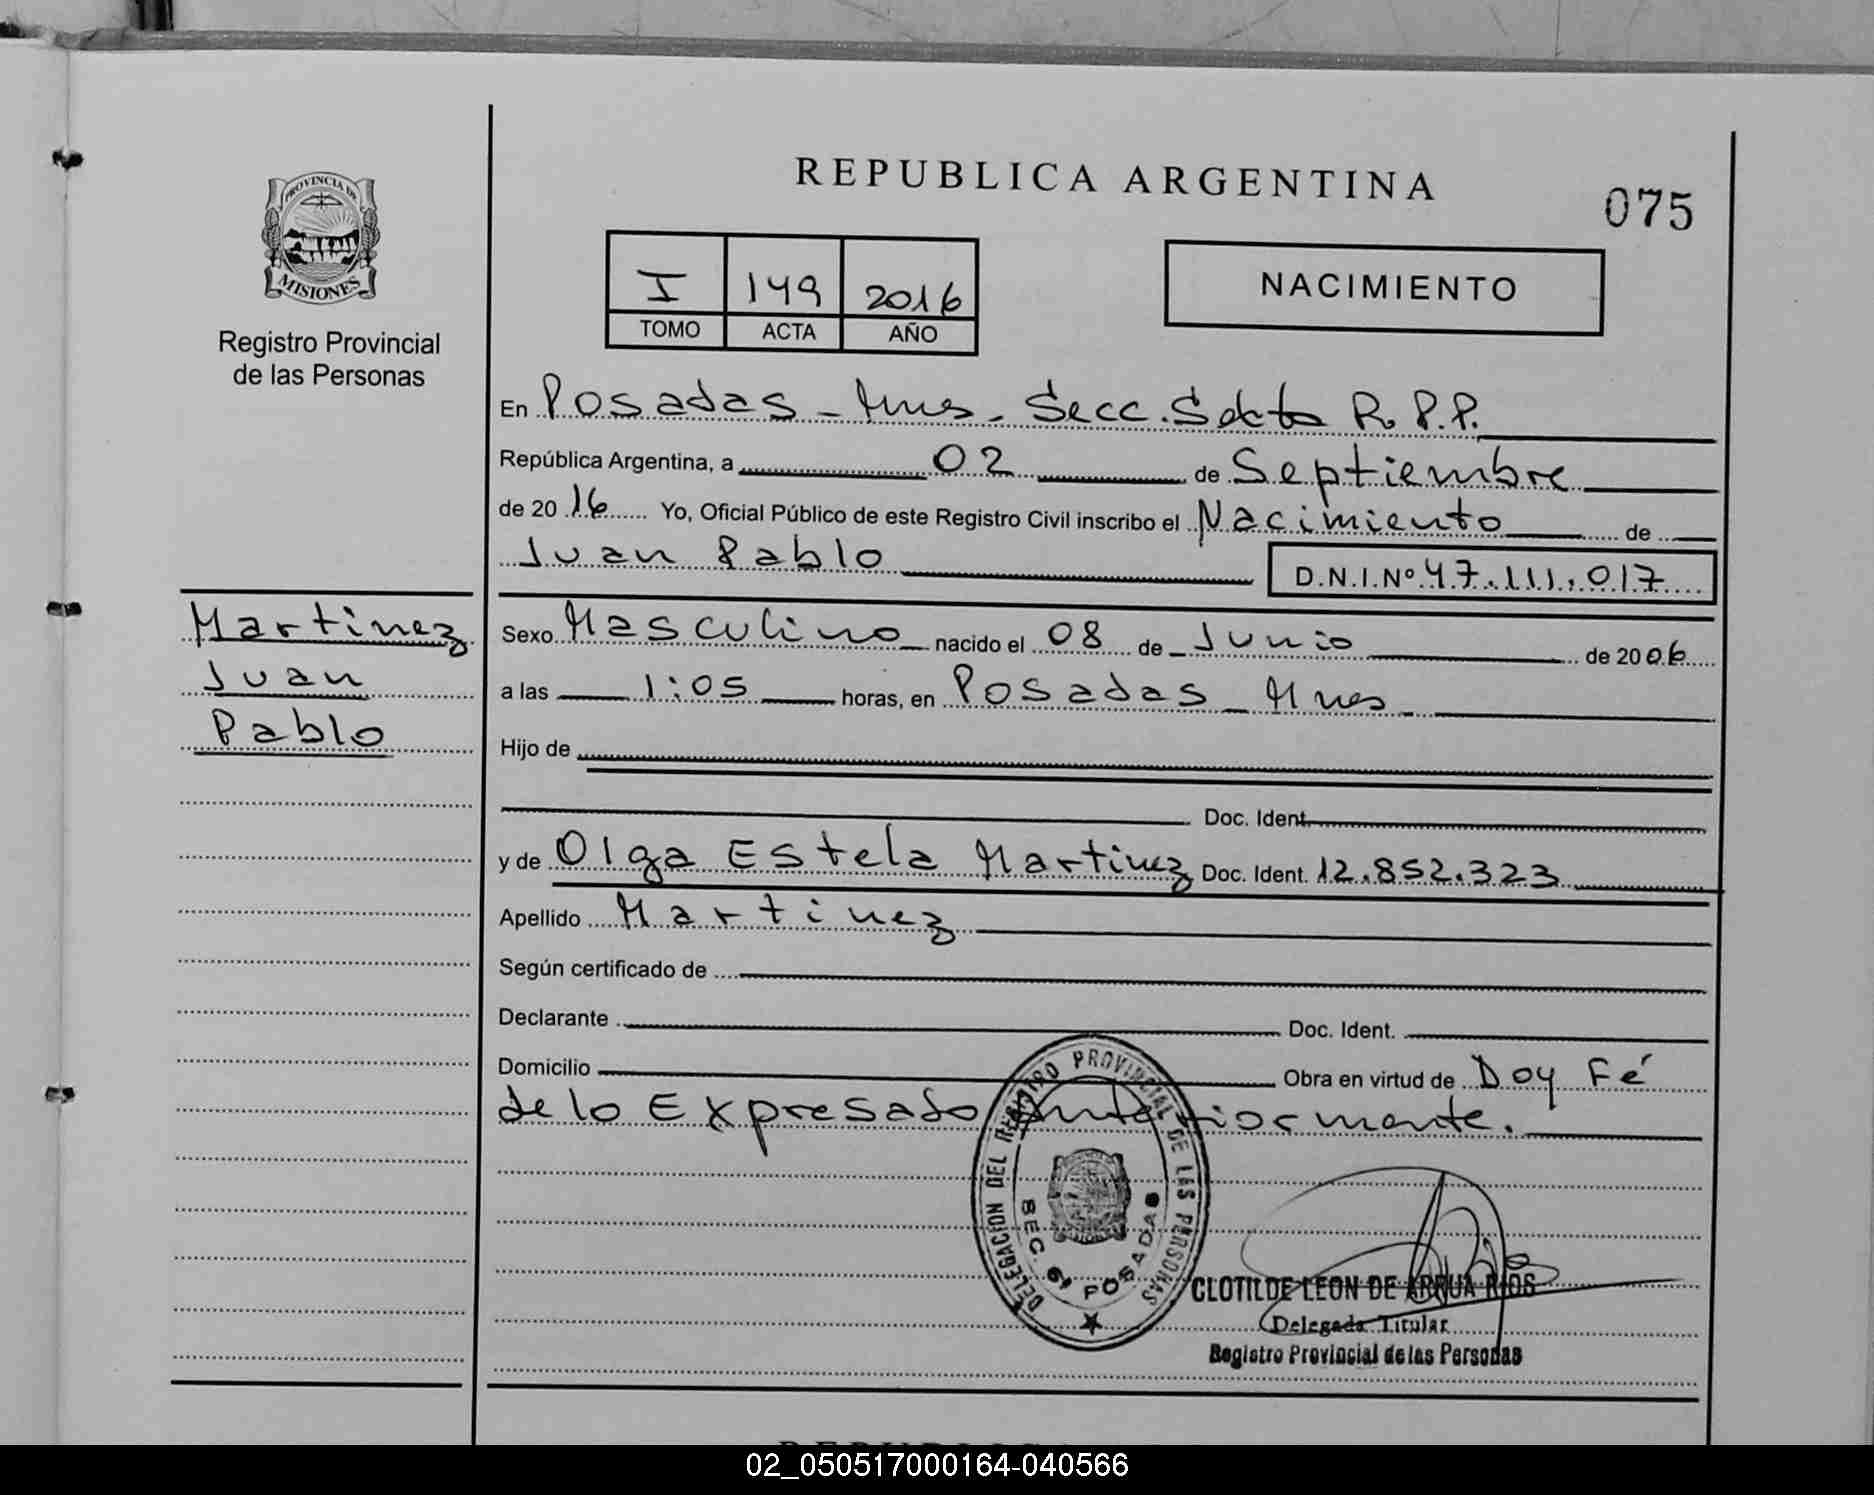 REPUBLICA ARGENTINA
075
PROVINCIA DE
MISIONES
Registro Provincial
de las Personas
I 149 2016
TOMO ACTA AÑO
NACIMIENTO
En Posadas - Mnes - Secc. Sexta R.P.P.
República Argentina, a 02 de Septiembre
de 2016 Yo, Oficial Público de este Registro Civil inscribo el Nacimiento de
Juan Pablo D.N.I.Nº 47.111.017
Martinez
Juan
Pablo
Sexo Masculino nacido el 08 de Junio de 2006
a las 1:05 horas, en Posadas - Mnes
Hijo de
Doc. Ident.
y de Olga Estela Martinez Doc. Ident. 12.852.323
Apellido Martinez
Según certificado de
Declarante Doc. Ident.
Domicilio Obra en virtud de Doy Fé
de lo Expresado Anteriormente.
DELEGACION DEL REGISTRO PROVINCIAL DE LAS PERSONAS
SEC. 6ª POSADAS
CLOTILDE LEON DE ARRUA RIOS
Delegada Titular
Registro Provincial de las Personas
02_050517000164-040566